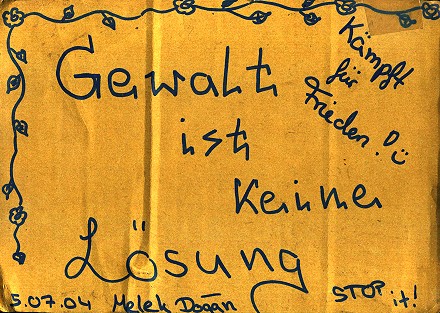 Gewalt
ist
keine
Lösung
Kämpft
für
Frieden!
5.07.04 Melek Dogan
STOP it!